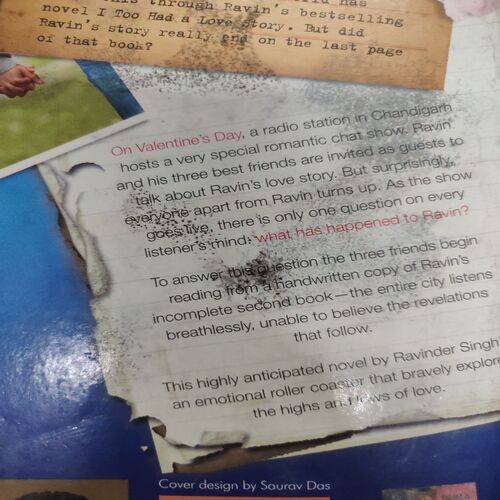 this through Ravin's bestselling
novel I Too Had a Love Story. But did
Ravin's story really end on the last page
of that book?
On Valentine's Day, a radio station in Chandigarh
hosts a very special romantic chat show. Ravin
and his three best friends are invited as guests to
talk about Ravin's love story. But surprisingly,
everyone apart from Ravin turns up. As the show
goes live, there is only one question on every
listener's mind: what has happened to Ravin?
To answer this question the three friends begin
reading from a handwritten copy of Ravin's
incomplete second book—the entire city listens
breathlessly, unable to believe the revelations
that follow.
This highly anticipated novel by Ravinder Singh
an emotional roller coaster that bravely explore
the highs and lows of love.
Cover design by Saurav Das